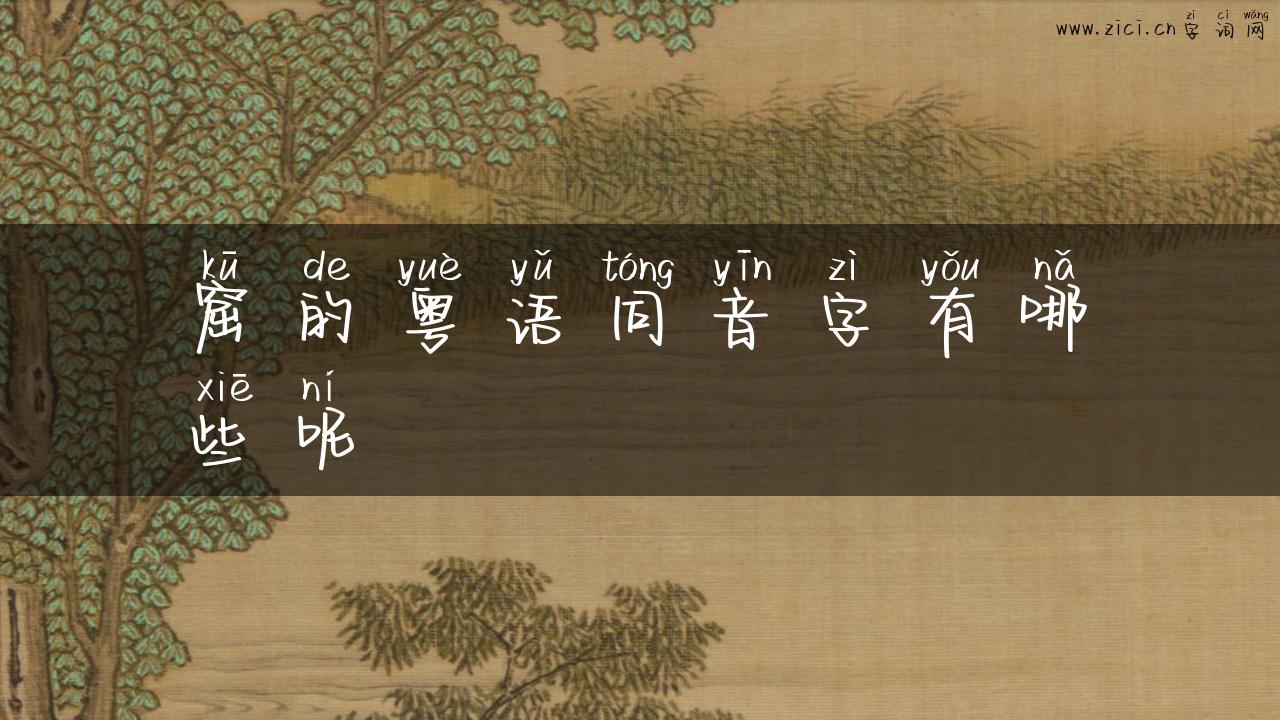 zì cí wǎng
www.zici.cn字词网
kū de yuè yǔ tóng yīn zì yǒu nǎ
窟的粤语同音字有哪
xiē ní
些呢